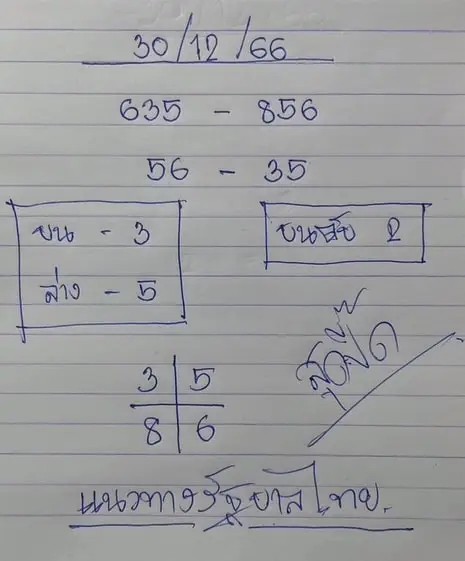 30/12/66
635 - 856
56 - 35
บน - 3
บนลับ 2
ล่าง - 5
3 5
8 6
แนวทางรัฐบาลไทย.